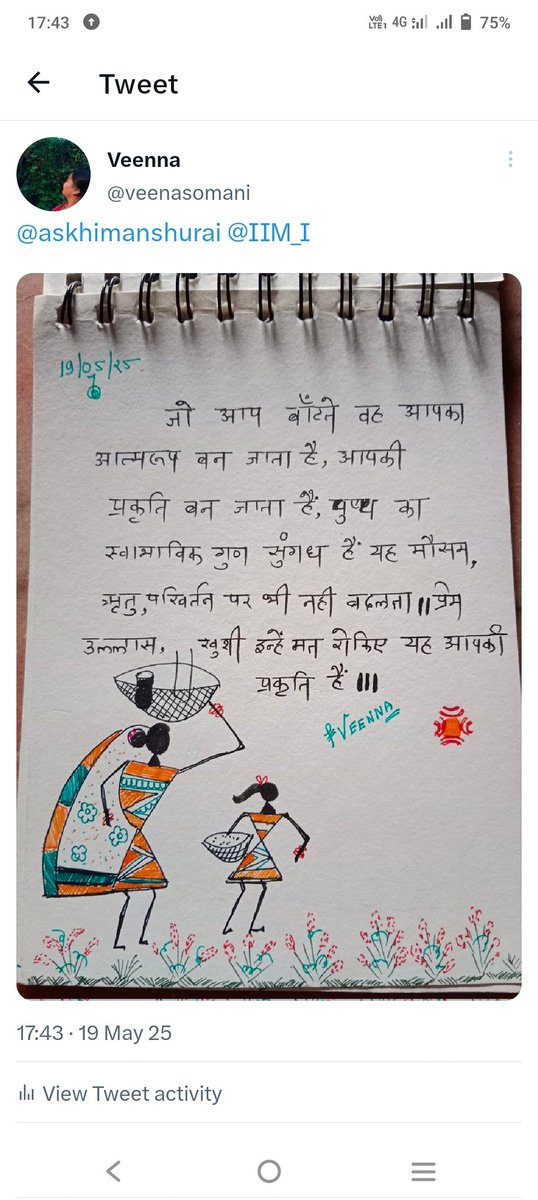 17:43
Vo) LTE1 4G 75%
Tweet
Veenna
@veenasomani
@askhimanshurai @IIM_I
19/05/25
जो आप बाँटते वह आपका
आत्मरूप बन जाता है, आपकी
प्रकृति बन जाता हैं, पुष्प का
स्वाभाविक गुण सुंगध हैं यह मौसम,
ऋृतु,परिवर्तन पर भी नही बदलता॥प्रेम
उल्लास, खुशी इन्हें मत रोकिए यह आपकी
प्रकृति हैं |||
#VEENNA
17:43 · 19 May 25
View Tweet activity